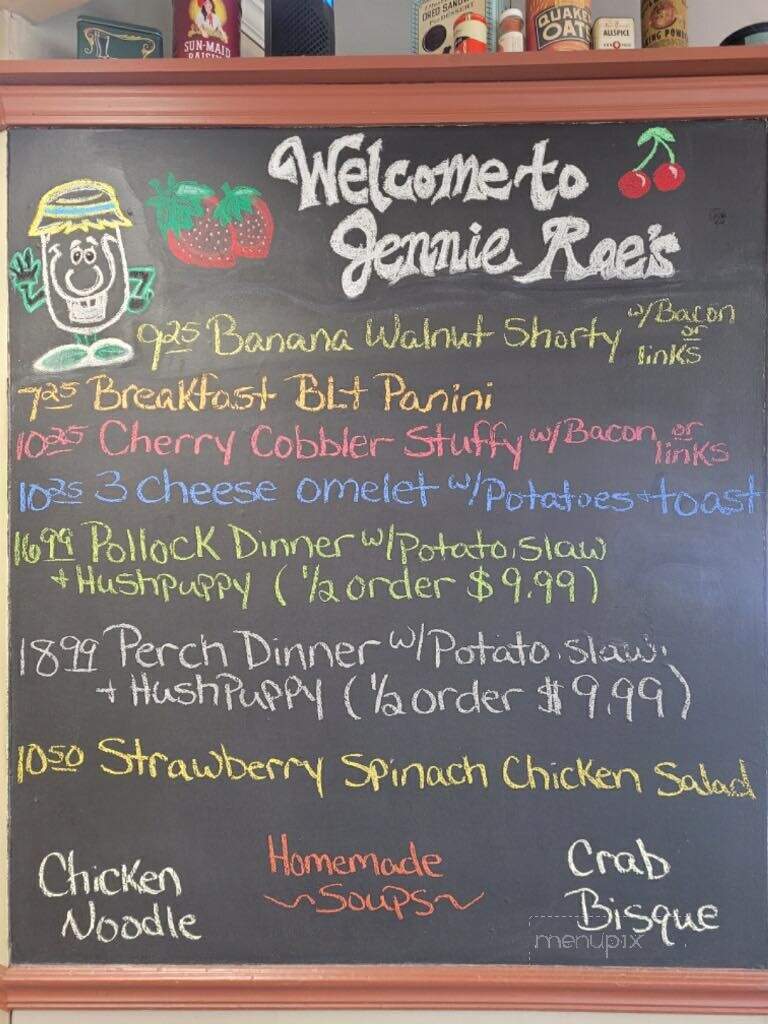 SUN-MAID
RAISINS
OREO SANDWICH
DESSERT
QUAKER
OATS
ALLSPICE
Welcome to
Jennie Rae's
9.25 Banana Walnut Shorty w/Bacon
or
links
7.25 Breakfast BLT Panini
10.25 Cherry Cobbler Stuffy w/Bacon or
links
10.25 3 Cheese omelet w/Potatoes + toast
16.99 Pollock Dinner w/Potato, slaw
+ HushPuppy (1/2 order $9.99)
18.99 Perch Dinner w/Potato, slaw,
+ HushPuppy (1/2 order $9.99)
10.50 Strawberry Spinach Chicken Salad
Chicken
Noodle
Homemade
~Soups~
Crab
Bisque
menupix